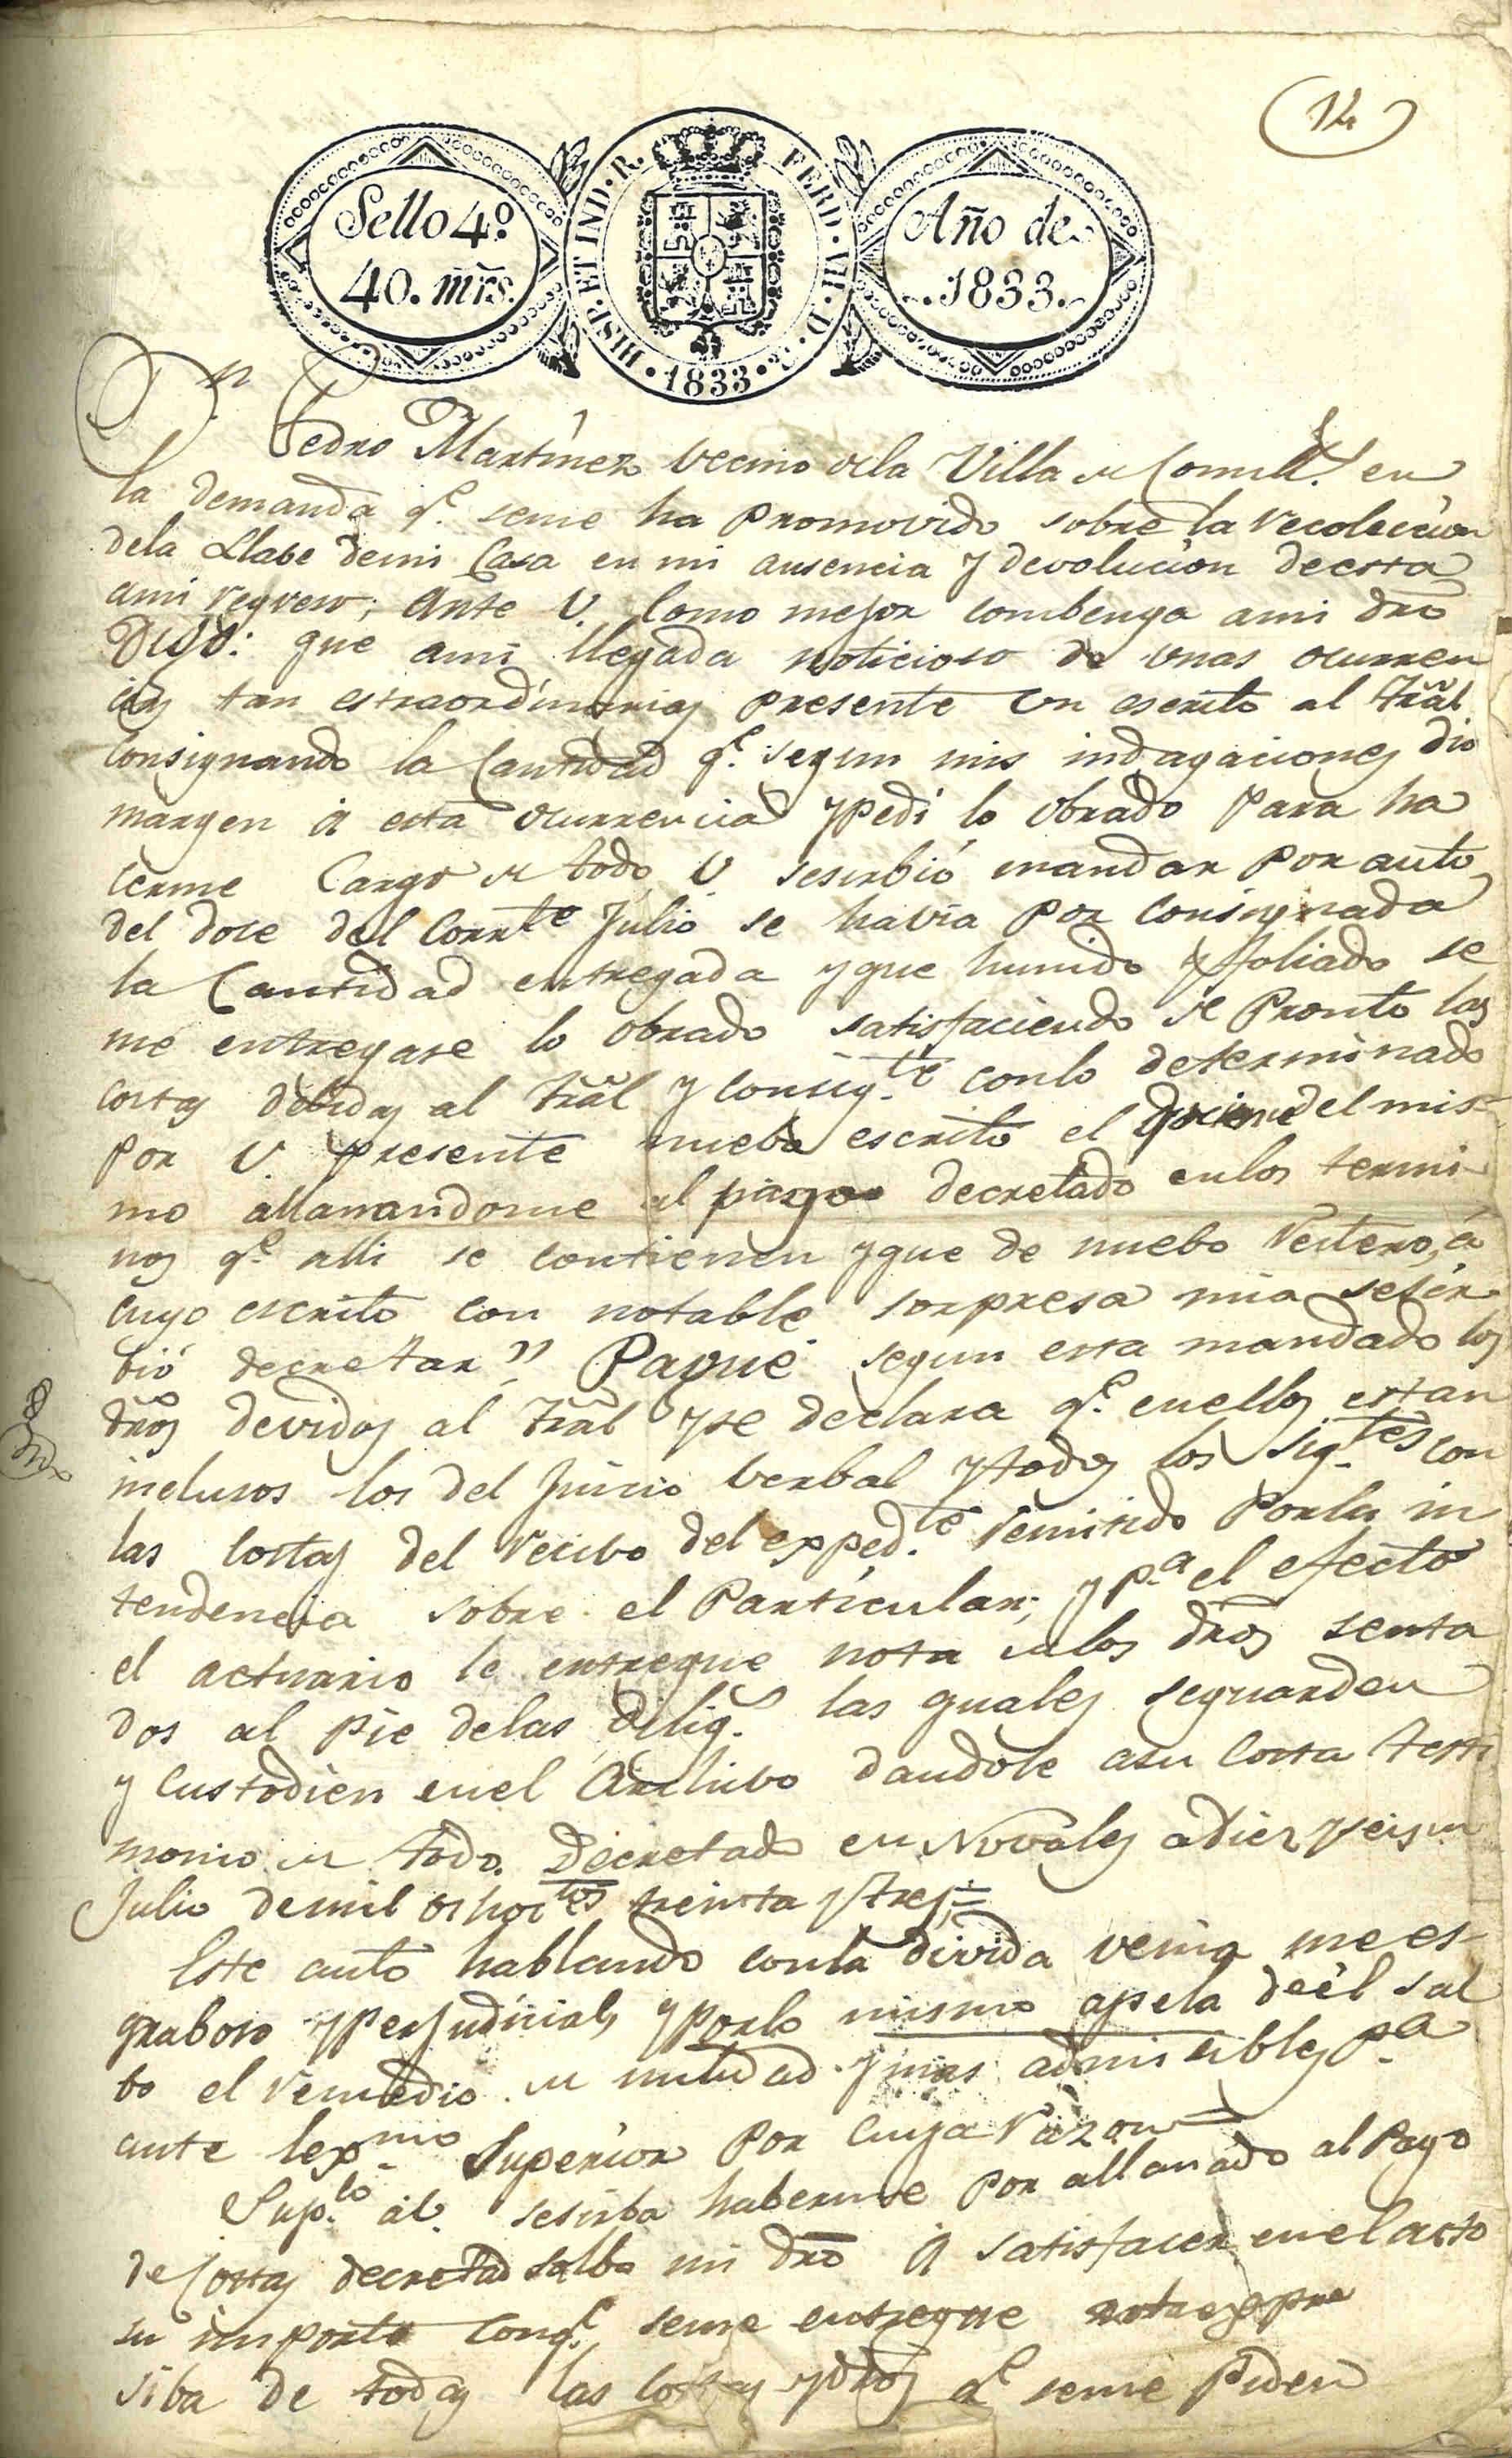 14
Sello 4º
40. mrs.
HISP. ET IND. R. FERD. VII. D. G.
1833
Año de
1833.
Dn Pedro Martinez vecino dela Villa de Comills. en
la demanda qe. seme ha promovido sobre la recoleccion
dela Llabe demi Casa en mi ausencia y devolucion deesta
ami regreso; ante V. como mejor combenga ami dro
Digo: que ami llegada noticioso de unas ocurren
cias tan estraordinarias presente un escrito al Tral
consignando la Cantidad qe. segun mis indagaciones dio
margen á esta ocurrencia ypedi lo obrado para ha
cerme Cargo de todo V. sesirbió mandar por auto
del doce del Corrte Julio se havia por consignada
la Cantidad entregada yque hunido yfoliado se
me entregase lo obrado satisfaciendo de Pronto las
costas debidas al Tral y consigte. conlo determinado
por V. presente nuebo escrito el del mis-
mo allanandome al pago decretado enlos termi
nos qe. alli se contienen yque de nuebo reitero, á
cuyo escrito con notable sorpresa mia sesir
bió decretar" Pague segun esta mandado los
dros devidos al Tral yse declara qe. enellos estan
inclusos los del Juicio verbal ytodos los sigtes. con
las costas del recivo del expedte. remitido Porla in
tendencia sobre el Particular; y pa. el efecto
el actuario le entregue nota delos dros senta
dos al pie delas diligs. las quales seguarden
y Custodien enel Archivo dandole asu Costa testi
monio de todo. Decretado en Novales adiez yseis de
Julio demil ochoctos treinta ytres=
Este auto hablando conla divida venia mees
graboso yperjudicial, yporlo mismo apela deél sal
bo el remedio de nulidad y mas admisibles pa.
ante lexmo. Superior por cuya razon=
Supco. aV. sesirba haberme por allanado al Pago
de Costas decretad salbo mi dro á satisfacer enel acto
su importe conqe. seme entregue nota expre
siba de todas las costas ydros qe. seme piden